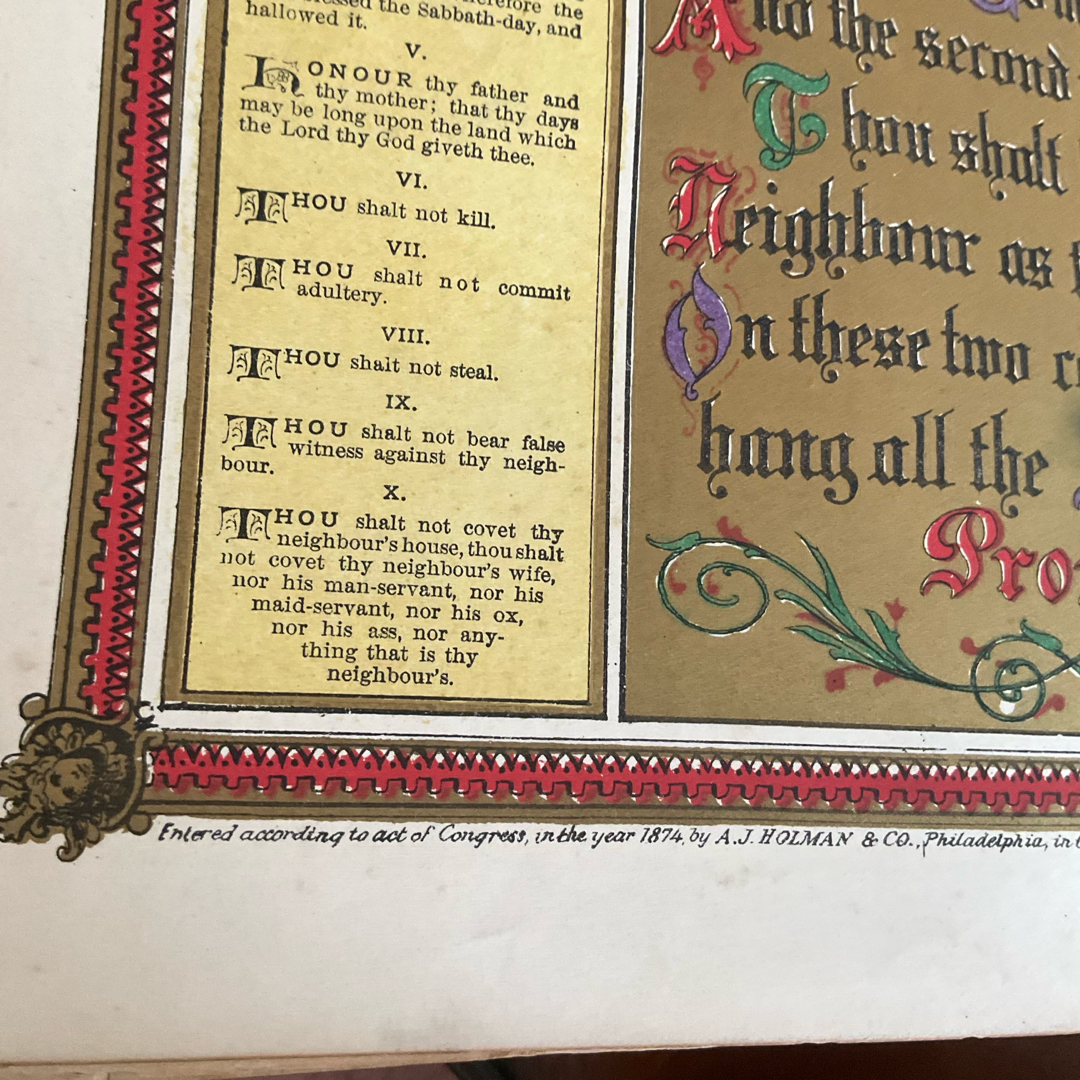 the Sabbath-day, and
hallowed it.
V.
HONOUR thy father and
thy mother; that thy days
may be long upon the land which
the Lord thy God giveth thee.
VI.
THOU shalt not kill.
VII.
THOU shalt not commit
adultery.
VIII.
THOU shalt not steal.
IX.
THOU shalt not bear false
witness against thy neigh-
bour.
X.
THOU shalt not covet thy
neighbour's house, thou shalt
not covet thy neighbour's wife,
nor his man-servant, nor his
maid-servant, nor his ox,
nor his ass, nor any-
thing that is thy
neighbour's.
And the second
Thou shalt
Neighbour as
On these two
hang all the
Pro
Entered according to act of Congress, in the year 1874, by A.J. HOLMAN & CO., Philadelphia, in